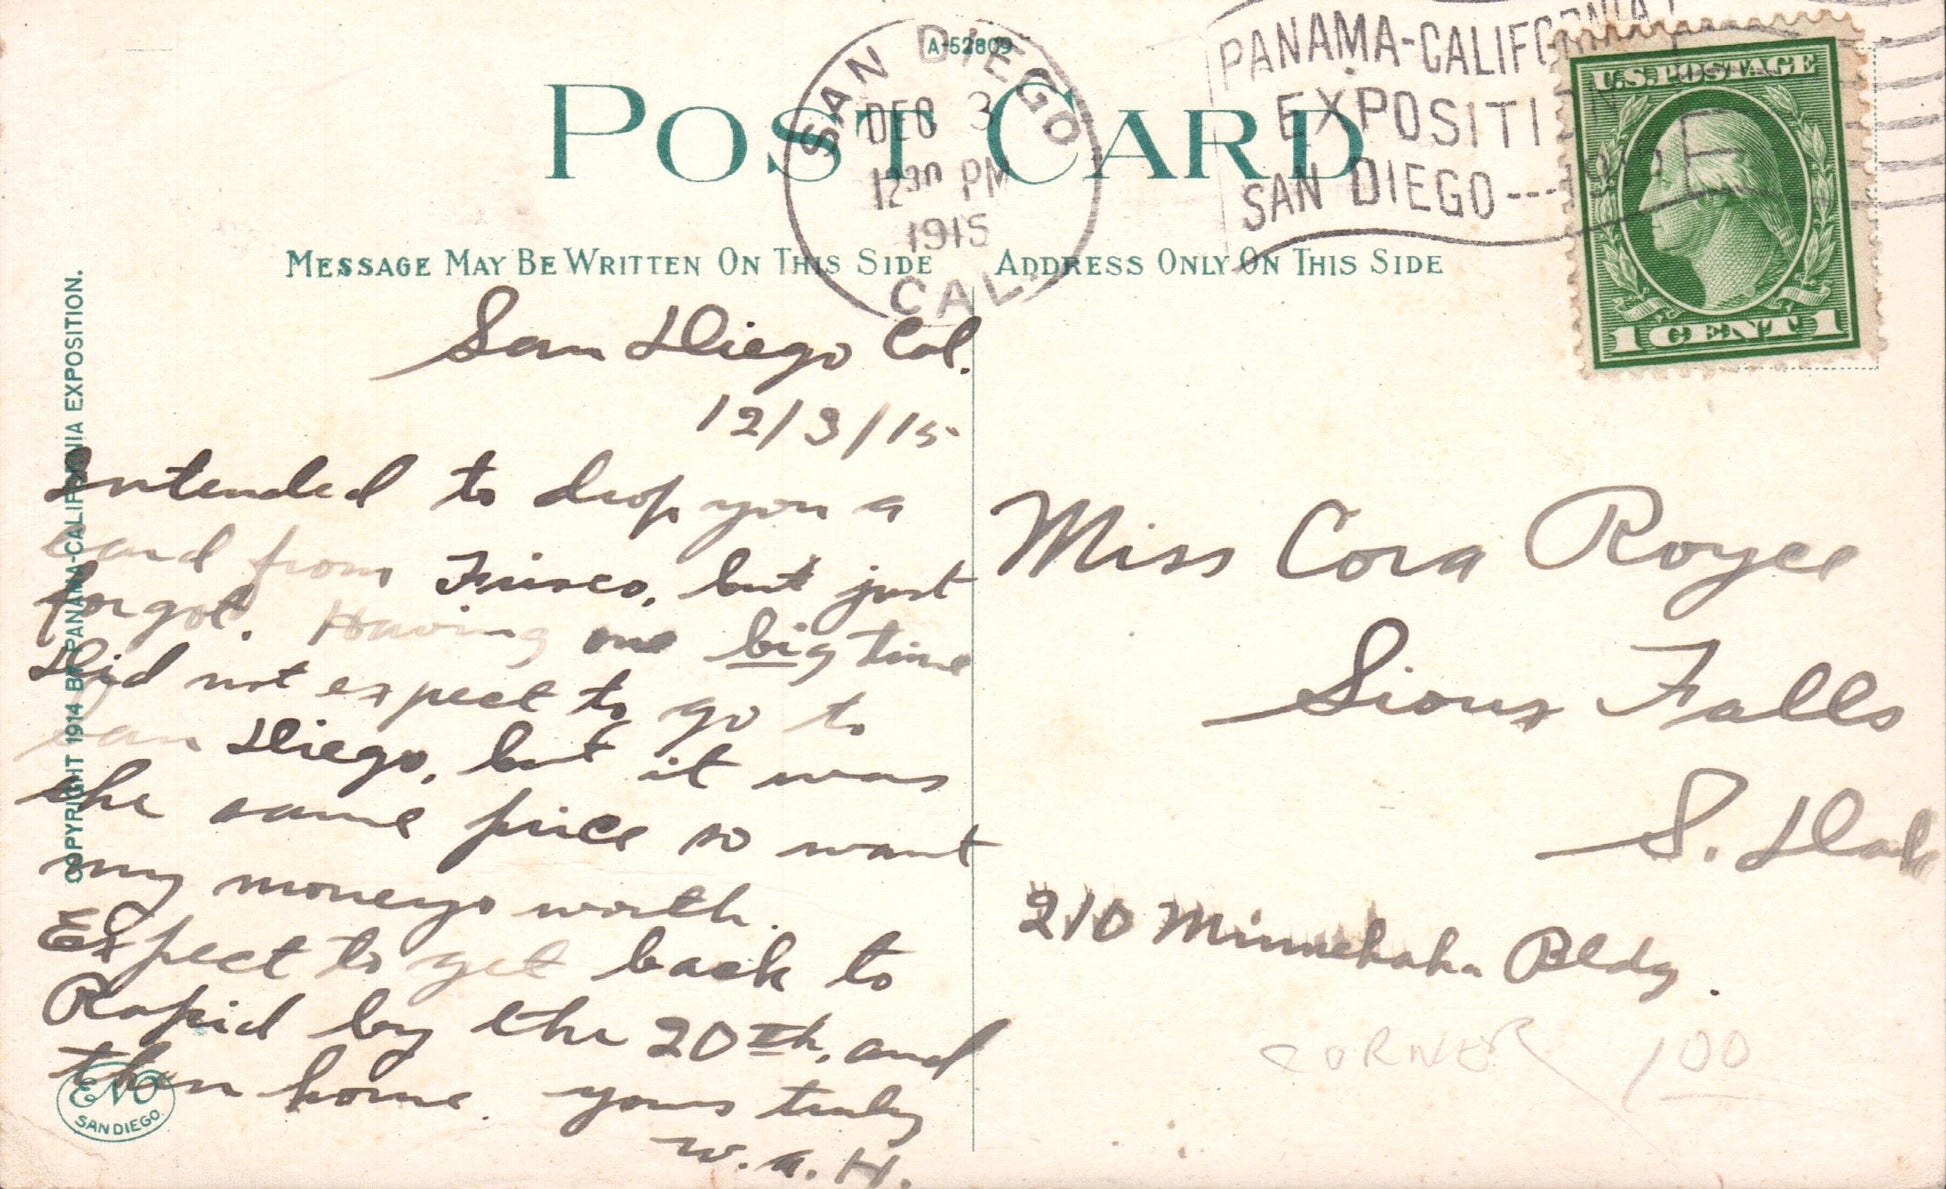 A-52809
POST CARD
SAN DIEGO
DEC 3
12 30 PM
1915
CAL.
PANAMA-CALIFORNIA
EXPOSITION
SAN DIEGO---1915
U.S. POSTAGE
1 CENT 1
MESSAGE MAY BE WRITTEN ON THIS SIDE
ADDRESS ONLY ON THIS SIDE
COPYRIGHT 1914 BY PANAMA-CALIFORNIA EXPOSITION.
San Diego Cal.
12/3/15
Intended to drop you a
card from Frisco, but just
forgot. Having one big time
Did not expect to go to
San Diego, but it was
the same price so want
my moneys worth.
Expect to get back to
Rapid by the 20th, and
then home. yours truly
W. A. H.
ENO
SAN DIEGO.
Miss Cora Royce
Sioux Falls
S. Dak
210 Minnehaha Bldg.
CORNER 100